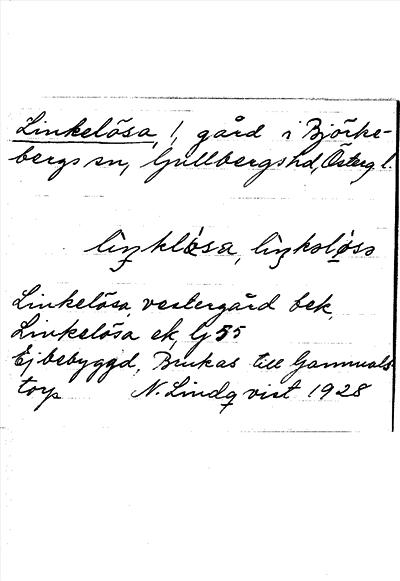 Linkelösa, !, gård i Björke-
bergs sn, Gullbergs hd, Österg l.
Linkelösa, vestergård bek,
Linkelösa ek, G 55
Ej bebyggd, Brukas till Gammals-
torp N. Lindqvist 1928